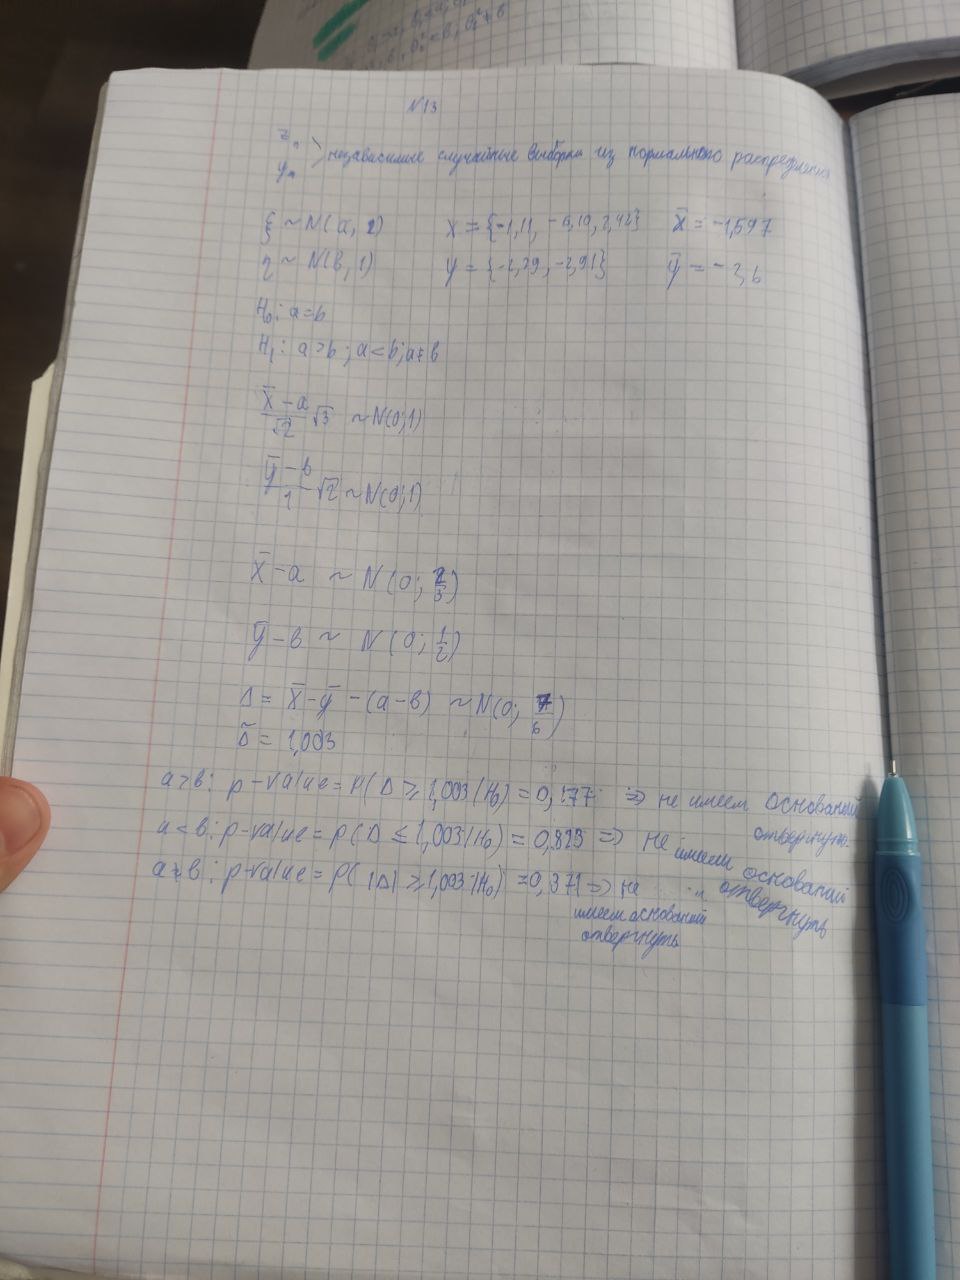 N13
независимые случайные выборки из нормального распределения
ξ ~ N(a, 2) X = {-1,11, -6,10, 2,42} X̄ = -1,597
η ~ N(b, 1) y = {-2,29, -2,91} ȳ = -2,6
H₀: a=b
H₁: a>b; a<b; a≠b
(X̄-a)/√2 √3 ~ N(0;1)
(ȳ-b)/1 √2 ~ N(0;1)
X̄-a ~ N(0; 2/3)
ȳ-b ~ N(0; 1/2)
Δ = X̄-ȳ-(a-b) ~ N(0; 7/6)
Δ̃ = 1,003
a>b: p-value = P(Δ ≥ 1,003/H₀) = 0,177 ⇒ не имеем оснований отвергнуть
a<b: p-value = P(Δ ≤ 1,003/H₀) = 0,823 ⇒ не имеем оснований отвергнуть
a≠b: p-value = P(|Δ| ≥ 1,003/H₀) = 0,371 ⇒ не
имеем оснований
отвергнуть